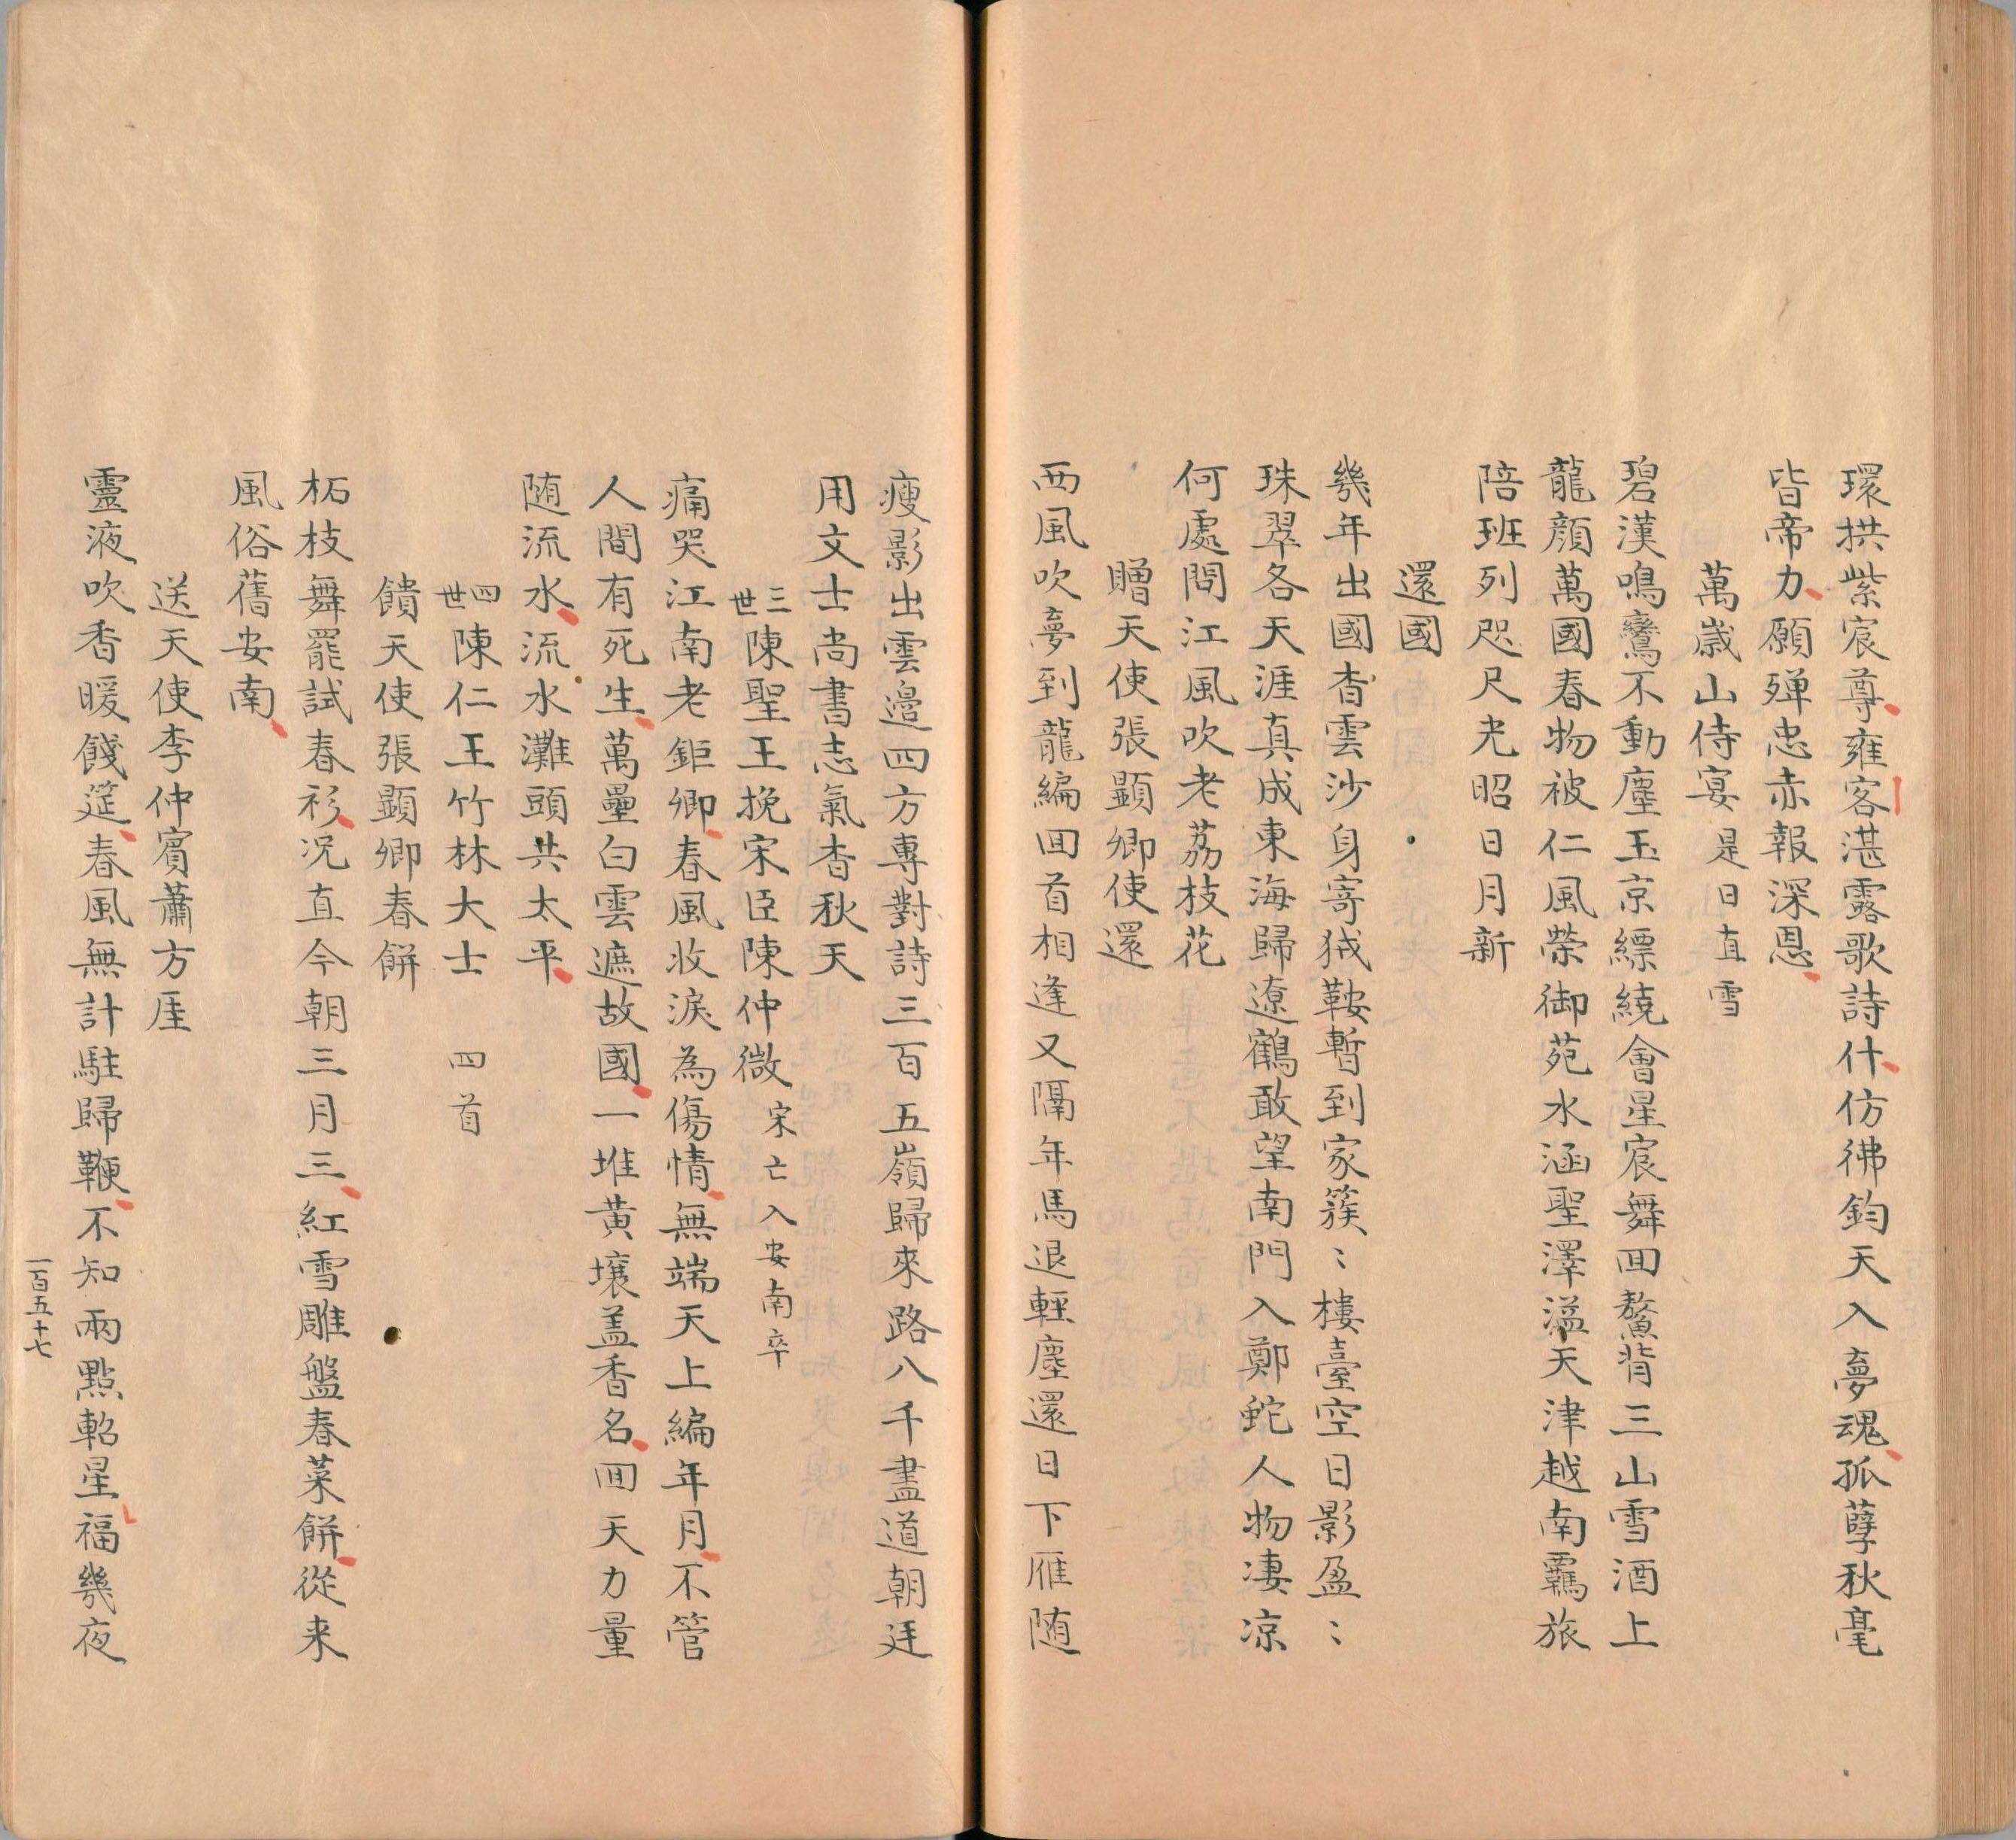 環拱紫宸尊雍客湛露歌詩什仿彿鈞天入夢魂孤孽秋毫
皆帝力願殫忠赤報深恩
萬歲山侍宴是日直雪
碧漢鳴鸞不動塵玉京縹繞會星宸舞回鰲背三山雪酒上
龍顏萬國春物被仁風榮御苑水涵聖澤溢天津越南羈旅
陪班列咫尺光昭日月新
還國
幾年出國杳雲沙身寄狨鞍暫到家簇〻樓臺空日影盈〻
珠翠各天涯真成東海歸遼鶴敢望南門入鄭蛇人物淒凉
何處問江風吹老荔枝花
贈天使張顯卿使還
西風吹夢到龍編回首相逢又隔年馬退輕塵還日下雁随
瘦影出雲邉四方專對詩三百五嶺歸來路八千盡道朝廷
用文士尚書志氣杏秋天
三世陳聖王挽宋臣陳仲微宋亡入安南卒
痛哭江南老鉅卿春風收淚為傷情無端天上編年月不管
人間有死生萬壘白雲遮故國一堆黄壤盖香名回天力量
随流水流水灘頭共太平
四世陳仁王竹林大士 四首
饋天使張顯卿春餅
柘枝舞罷試春衫况直今朝三月三紅雪雕盤春菜餅從来
風俗舊安南
送天使李仲賓蕭方厓
靈液吹香暖餞筵春風無計駐歸鞭不知兩點軺星福幾夜
一百五十七